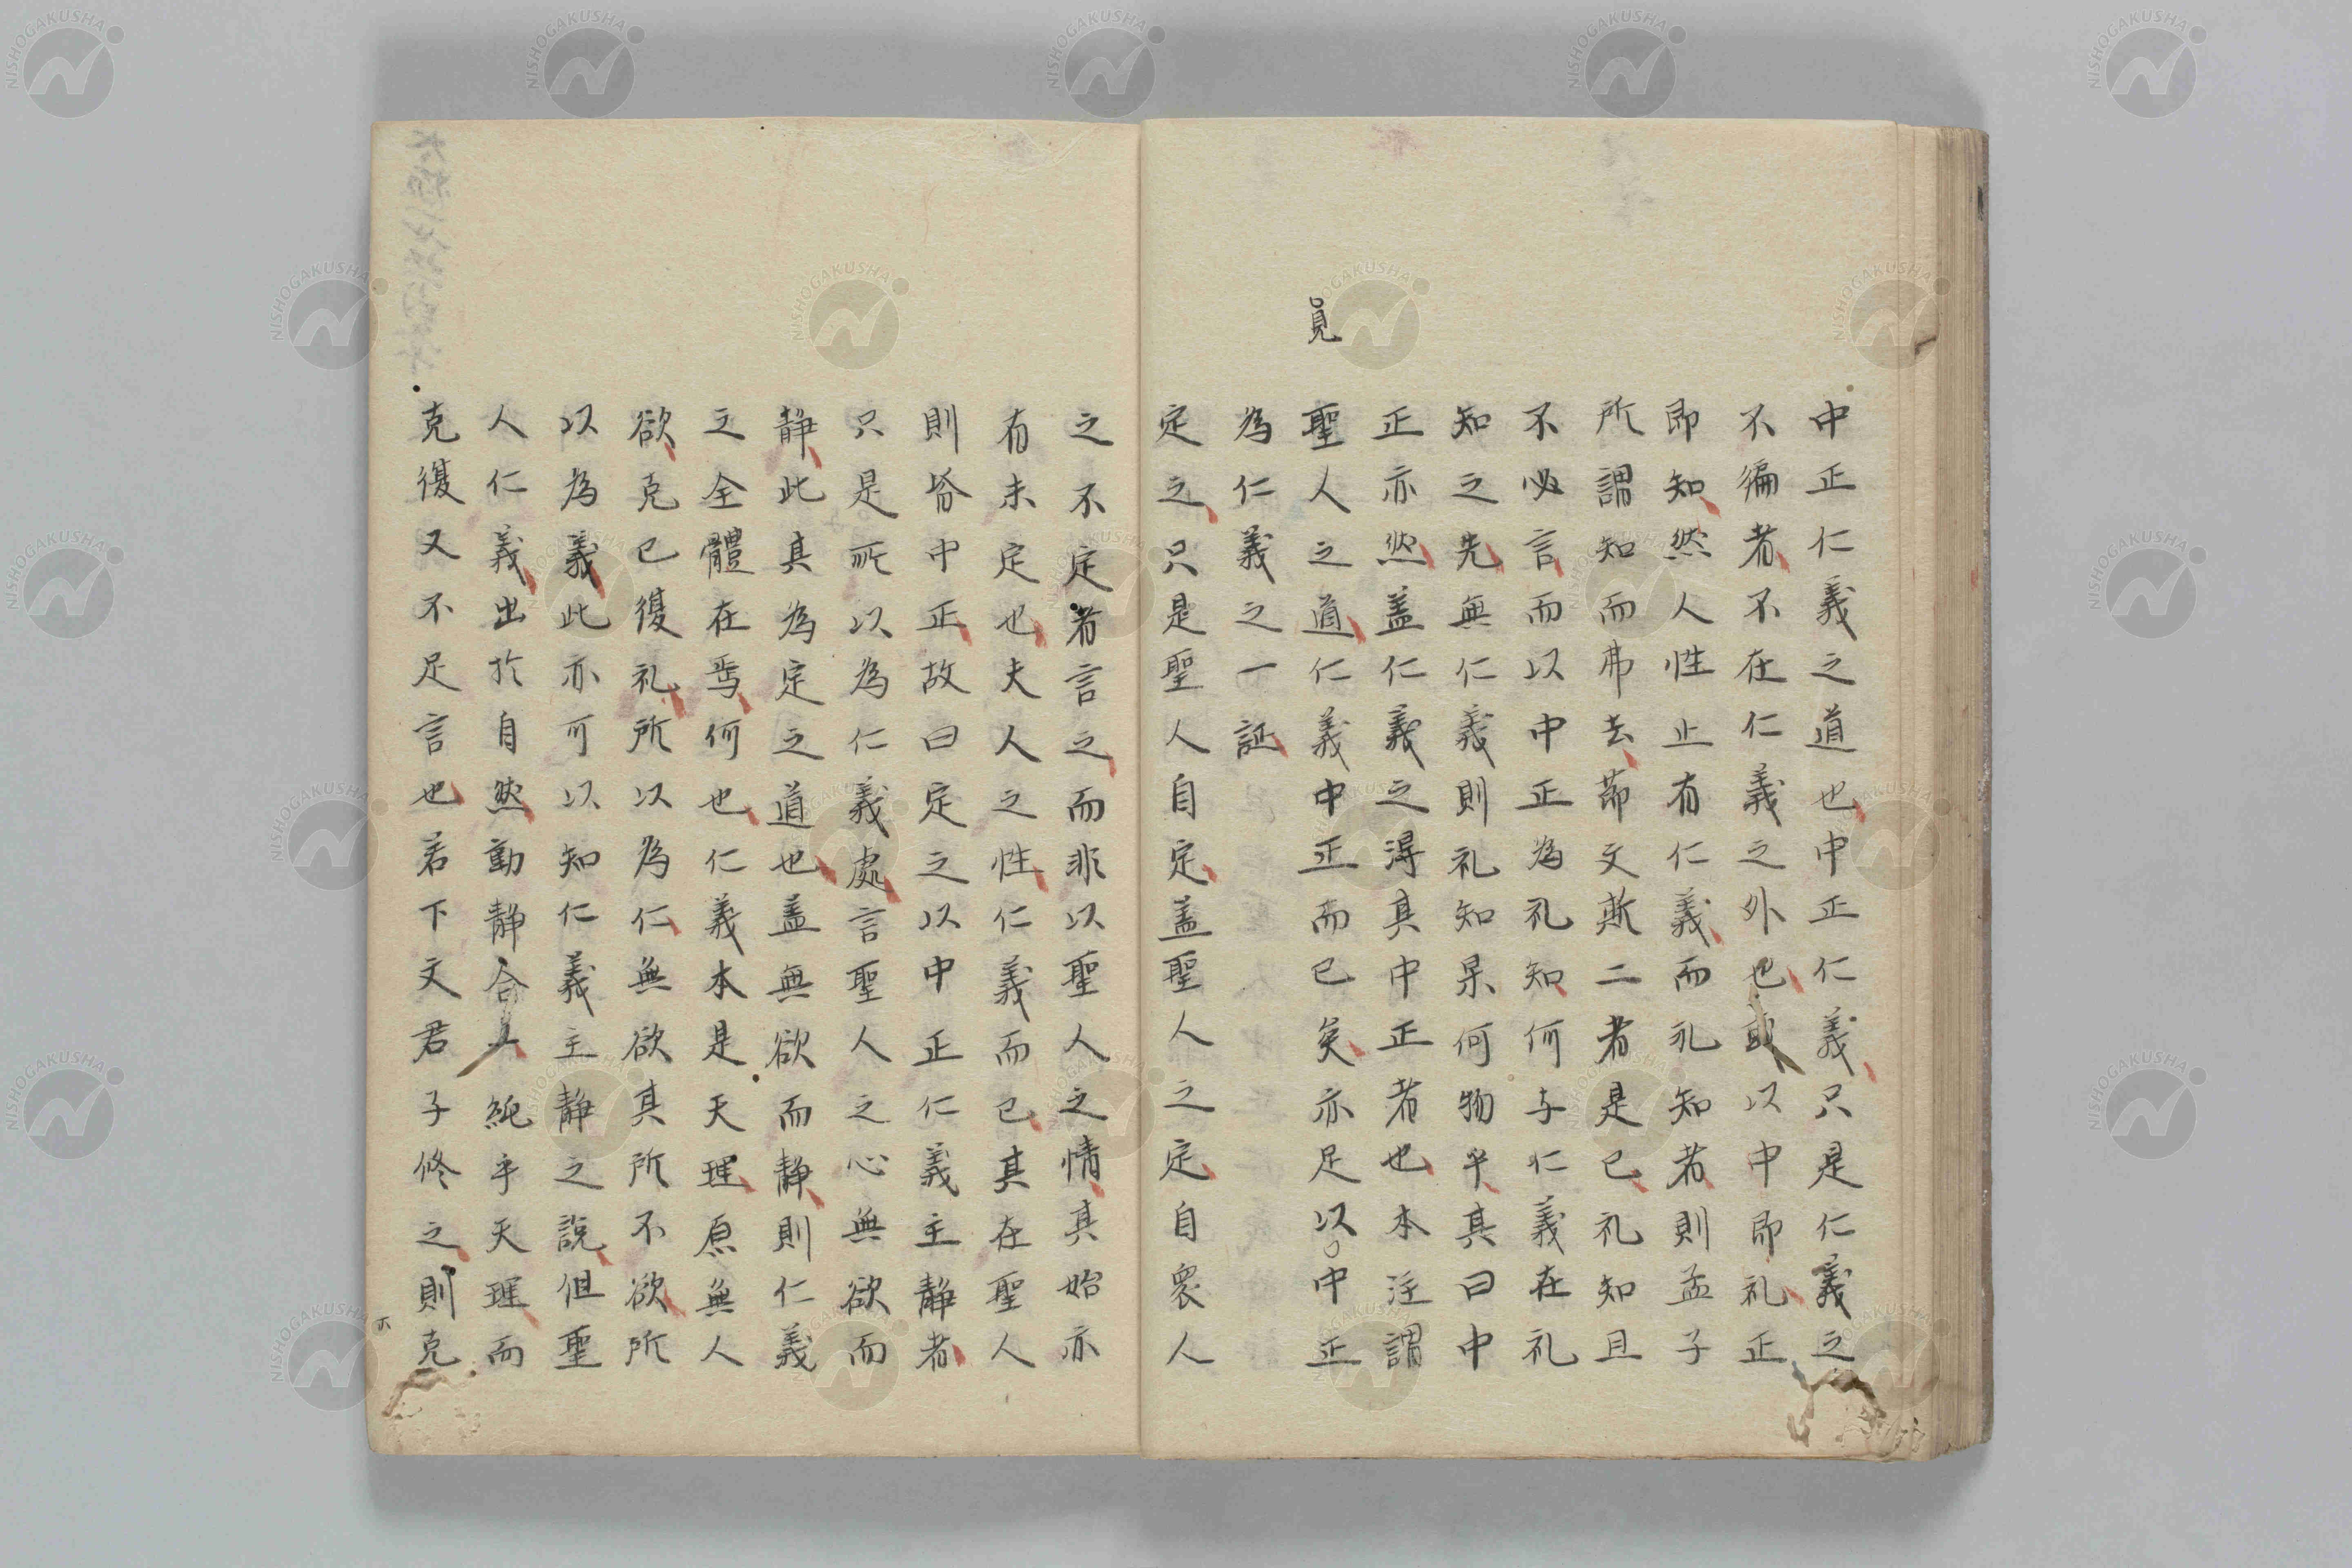 中正仁義之道也中正仁義只是仁義之
不徧者不在仁義之外也或以中即礼正
即知然人性止有仁義而礼知者則孟子
所謂知而弗去節文斯二者是已礼知且
不必言而以中正為礼知何与仁義在礼
知之先無仁義則礼知果何物乎其曰中
正亦然盖仁義之得其中正者也本注謂
覓
聖人之道仁義中正而已矣亦足以中正
為仁義之一証
定之只是聖人自定盖聖人之定自衆人
之不定者言之而非以聖人之情其始亦
有未定也夫人之性仁義而已其在聖人
則皆中正故曰定之以中正仁義主静者
只是所以為仁義處言聖人之心無欲而
静此其為定之道也盖無欲而静則仁義
之全體在焉何也仁義本是天理原無人
欲克已復礼所以為仁無欲其所不欲所
以為義此亦可以知仁義主静之說但聖
人仁義出於自然動静合純乎天理而
克復又不足言也若下文君子修之則克
六
NISHOGAKUSHA